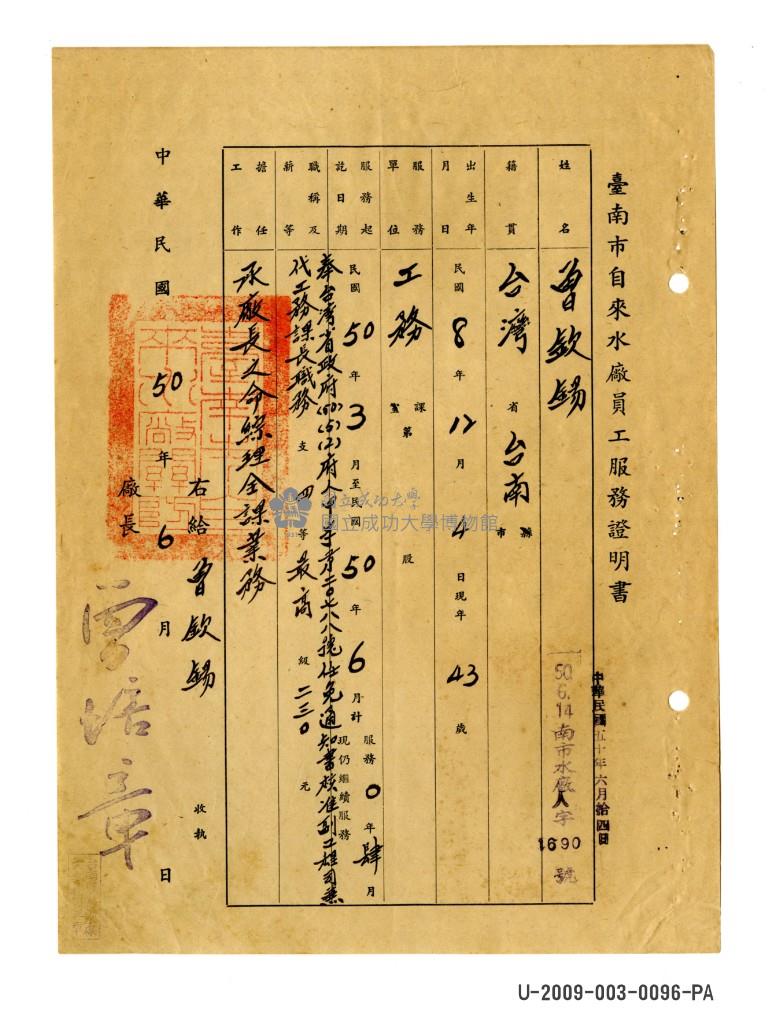 臺南市自來水廠員工服務證明書
中華民國五十年六月拾四日
50.6.14南市水廠人字1690號
姓名 曾欽錫
籍貫 台灣省台南縣市
出生年月日 民國8年12月4日現年43歲
服務單位 工務課室第股
服務起訖日期 民國50年3月至民國50年6月計服務0年肆月
現仍繼續服務
職稱及薪等 奉台灣省政府(50)(5)(2)府人
號任免通知書核准副工程司兼
代工務課長職務支四等最高級二三〇元
擔任工作 承廠長之命綜理全課業務
右給曾欽錫收執
廠長
中華民國50年6月日
國立成功大學
國立成功大學博物館
U-2009-003-0096-PA